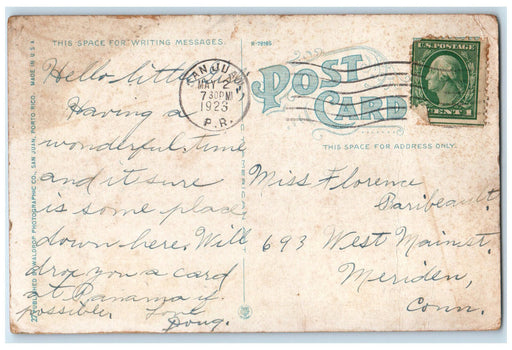 THIS SPACE FOR WRITING MESSAGES.
R-79165
MADE IN U.S.A.
PUBLISHED BY WALDROP PHOTOGRAPHIC CO., SAN JUAN, PORTO RICO.
POST CARD
THIS SPACE FOR ADDRESS ONLY.
SAN JUAN
MAY 2
730PM
1923
P.R.
U.S. POSTAGE
CENT 1
Hello little
Having a
wonderful time
and it sure
is some place
down here. Will
drop you a card
at Panama if
possible. Love
Doug.
Miss Florence
Paribeault
693 West Main st.
Meriden,
Conn.